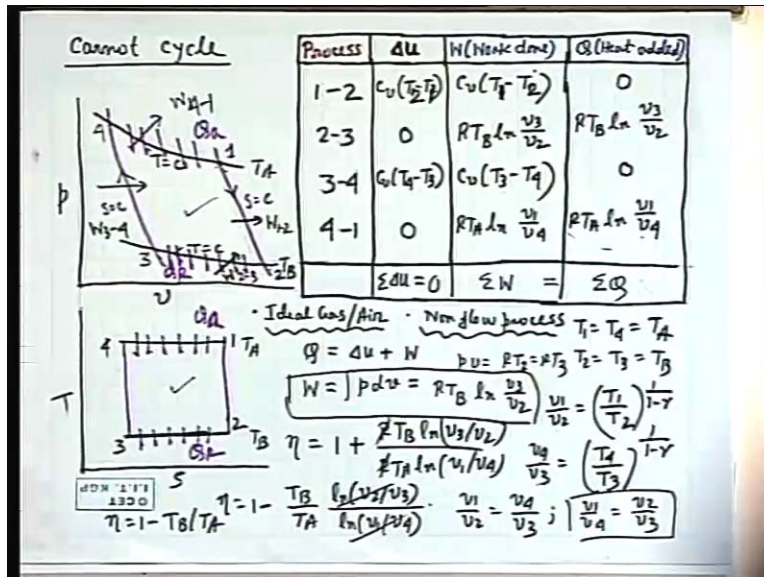 Carnot cycle
Process ΔU W(Work done) Q(Heat added)
1-2 Cv(T2-T1) Cv(T1-T2) 0
2-3 0 RTB ln v3/v2 RTB ln v3/v2
3-4 Cv(T4-T3) Cv(T3-T4) 0
4-1 0 RTA ln v1/v4 RTA ln v1/v4
ΣΔU=0 ΣW = ΣQ
W4-1
4 QA 1
T=C TA
P S=C S=C
W3-4 W1-2
3 T=C TB
QR W2-3 2
v
QA
4 1 TA
T
3 2 TB
QR
S
· Ideal Gas/Air · Non flow process T1=T4=TA
Q = ΔU + W pv= RT2=RT3 T2=T3=TB
W = ∫pdv = RTB ln v3/v2
v1/v2 = (T1/T2)^1/1-γ
η = 1 + RTB ln(v3/v2)/RTA ln(v1/v4) v4/v3 = (T4/T3)^1/1-γ
η = 1- TB/TA ln(v2/v3)/ln(v1/v4) . v1/v2 = v4/v3 ; v1/v4 = v2/v3
η=1-TB/TA
OCET
I.I.T. KGP